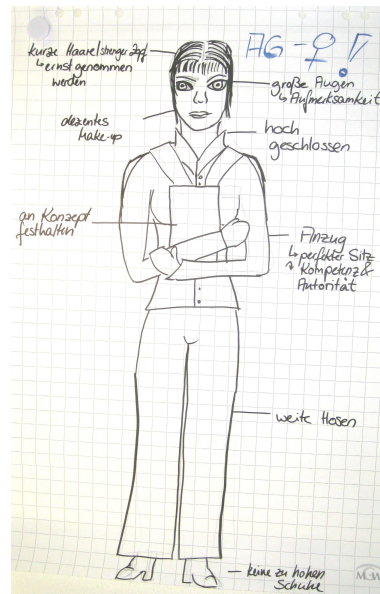 AG-♀!
kurze Haare/strenger Zopf
↳ ernst genommen
werden
große Augen
↳ Aufmerksamkeit
dezentes
Make-up
hoch
geschlossen
an Konzept
festhalten
Anzug
↳ perfekter Sitz
↳ Kompetenz &
Autorität
weite Hosen
keine zu hohen
Schuhe